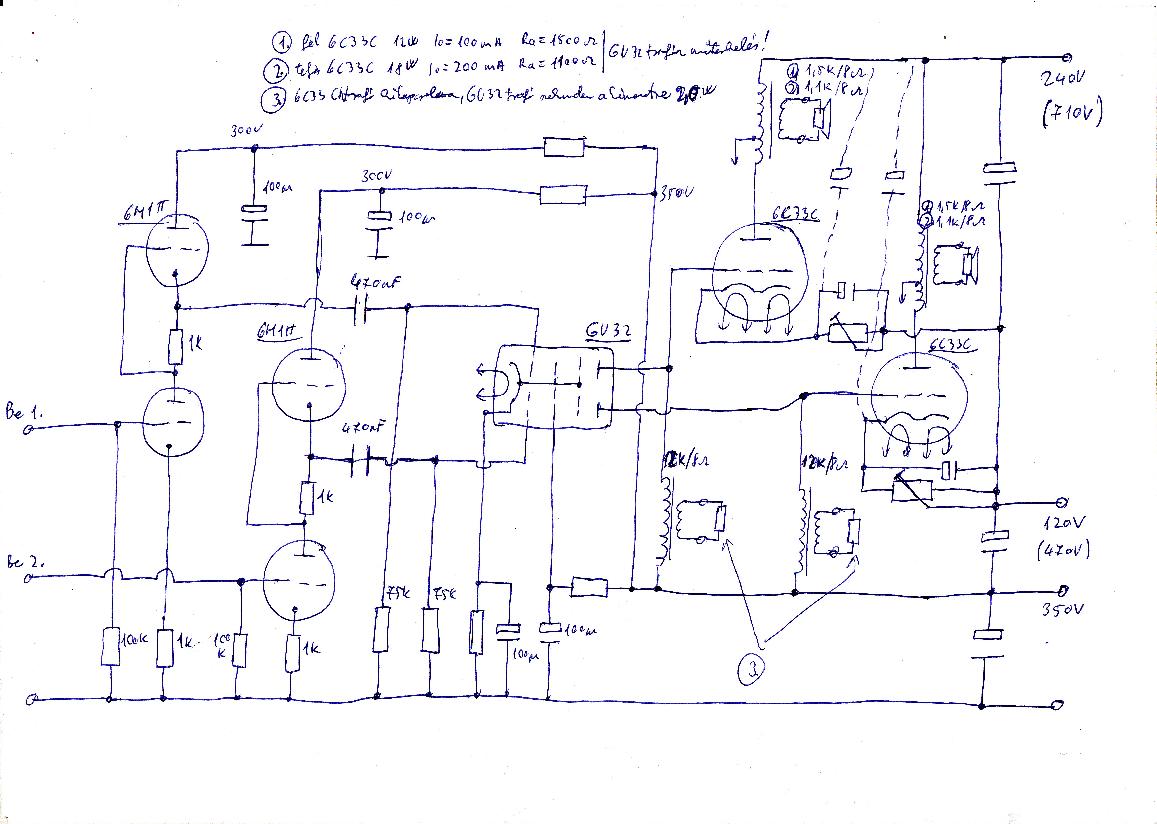 1. fél 6C33C 12W Io=100mA Ra=1500Ω
2. teljes 6C33C 18W Io=200mA Ra=1100Ω
GU32 trafón
3. 6C33C GU32 trafó 2,0W
300V
100µ
300V
100µ
350V
6Н1П
470nF
1K
6Н1П
Be 1.
470nF
1K
GU32
1. 1,5K/8Ω
2. 1,1K/8Ω
240V
(710V)
6C33C
1. 1,5K/8Ω
2. 1,1K/8Ω
6C33C
12K/8Ω
12K/8Ω
120V
(470V)
Be 2.
75K
75K
350V
100K
1K
100K
1K
100µ
100µ
3.